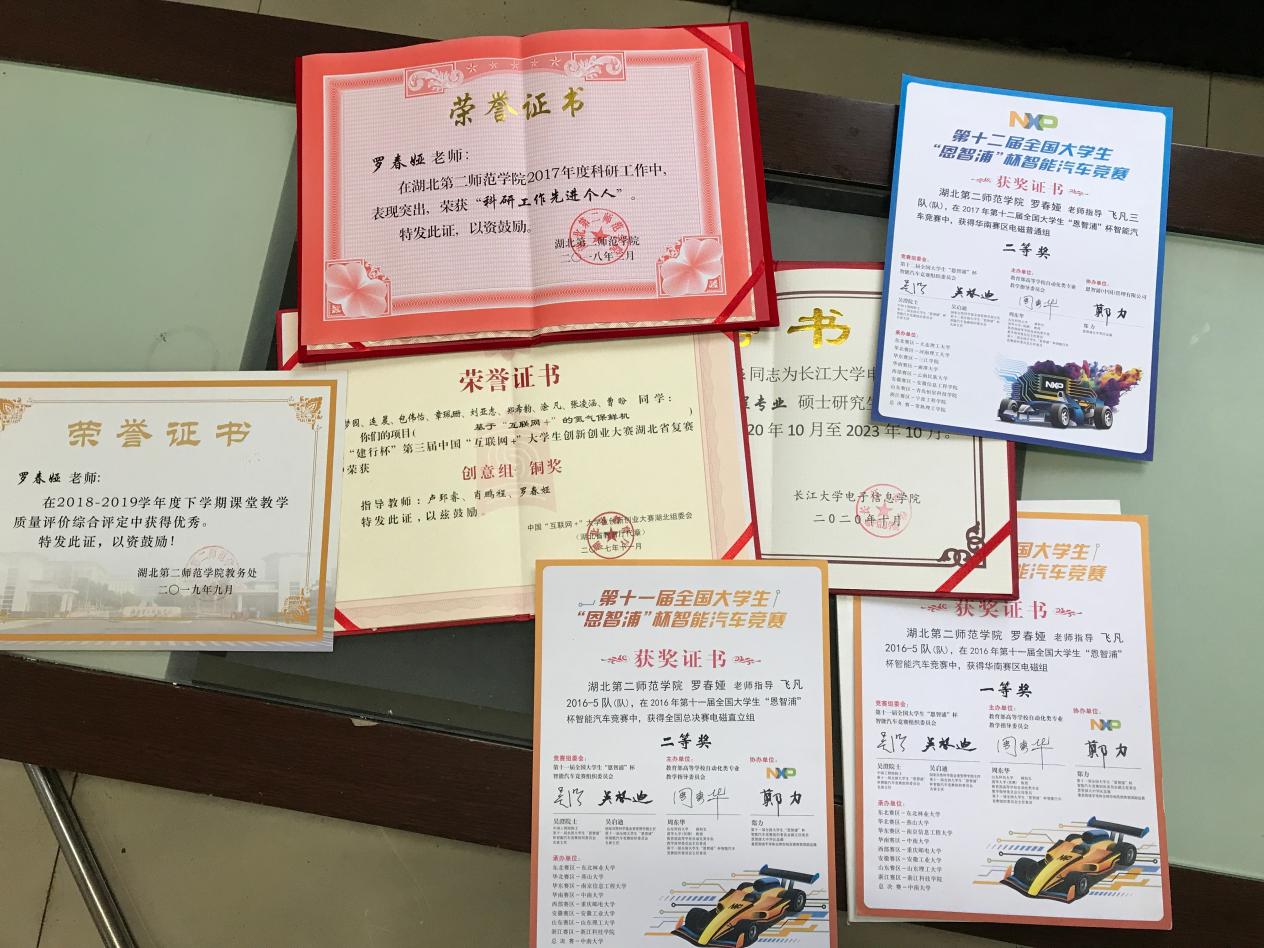 荣誉证书
罗春娅 老师：
在湖北第二师范学院2017年度科研工作中，
表现突出，荣获“科研工作先进个人”。
特发此证，以资鼓励。
湖北第二师范学院
二〇一八年三月
NXP
第十二届全国大学生
“恩智浦”杯智能汽车竞赛
获奖证书
湖北第二师范学院 罗春娅 老师指导 飞凡三
队(队)，在2017年第十二届全国大学生“恩智浦”杯智能汽
车竞赛中，获得华南赛区电磁普通组
二等奖
竞赛组委会：
第十二届全国大学生“恩智浦”杯
智能汽车竞赛组织委员会
主办单位：
教育部高等学校自动化类专业
教学指导委员会
协办单位：
恩智浦(中国)管理有限公司
吴澄院士
吴启迪
周东华
郑力
承办单位：
NXP
荣誉证书
罗春娅 老师：
在2018-2019学年度下学期课堂教学
质量评价综合评定中获得优秀。
特发此证，以资鼓励！
湖北第二师范学院教务处
二〇一九年九月
荣誉证书
连晨、包伟怡、章珮珊、刘亚志、郑希韵、涂凡、张凌涵、曹盼 同学：
你们的项目( 基于“互联网+”的氢气保鲜机 )
“建行杯”第三届中国“互联网+”大学生创新创业大赛湖北省复赛
荣获
创意组 铜奖
指导教师：卢郅睿、肖鹏程、罗春娅
特发此证，以兹鼓励。
中国“互联网+”大学生创新创业大赛湖北组委会
(湖北省教育厅代章)
二〇一七年十一月
书
同志为长江大学电
专业 硕士研究生
20年10月至2023年10月。
长江大学电子信息学院
二〇二〇年十月
第十一届全国大学生
“恩智浦”杯智能汽车竞赛
获奖证书
湖北第二师范学院 罗春娅 老师指导 飞凡
2016-5队(队)，在2016年第十一届全国大学生“恩智浦”
杯智能汽车竞赛中，获得全国总决赛电磁直立组
二等奖
竞赛组委会：
第十一届全国大学生“恩智浦”杯
智能汽车竞赛组织委员会
主办单位：
教育部高等学校自动化类专业
教学指导委员会
协办单位：
NXP
吴澄院士
吴启迪
周东华
郑力
承办单位：
东北赛区－东北林业大学
华北赛区－燕山大学
华东赛区－南京信息工程大学
华南赛区－中南大学
西部赛区－重庆邮电大学
安徽赛区－安徽工业大学
山东赛区－山东理工大学
浙江赛区－浙江科技学院
总决赛－中南大学
国大学生
能汽车竞赛
获奖证书
湖北第二师范学院 罗春娅 老师指导 飞凡
2016-5队(队)，在2016年第十一届全国大学生“恩智浦”
杯智能汽车竞赛中，获得华南赛区电磁组
一等奖
竞赛组委会：
第十一届全国大学生“恩智浦”杯
智能汽车竞赛组织委员会
主办单位：
教育部高等学校自动化类专业
教学指导委员会
协办单位：
NXP
吴澄院士
吴启迪
周东华
郑力
承办单位：
东北赛区－东北林业大学
华北赛区－燕山大学
华东赛区－南京信息工程大学
华南赛区－中南大学
西部赛区－重庆邮电大学
安徽赛区－安徽工业大学
山东赛区－山东理工大学
浙江赛区－浙江科技学院
总决赛－中南大学